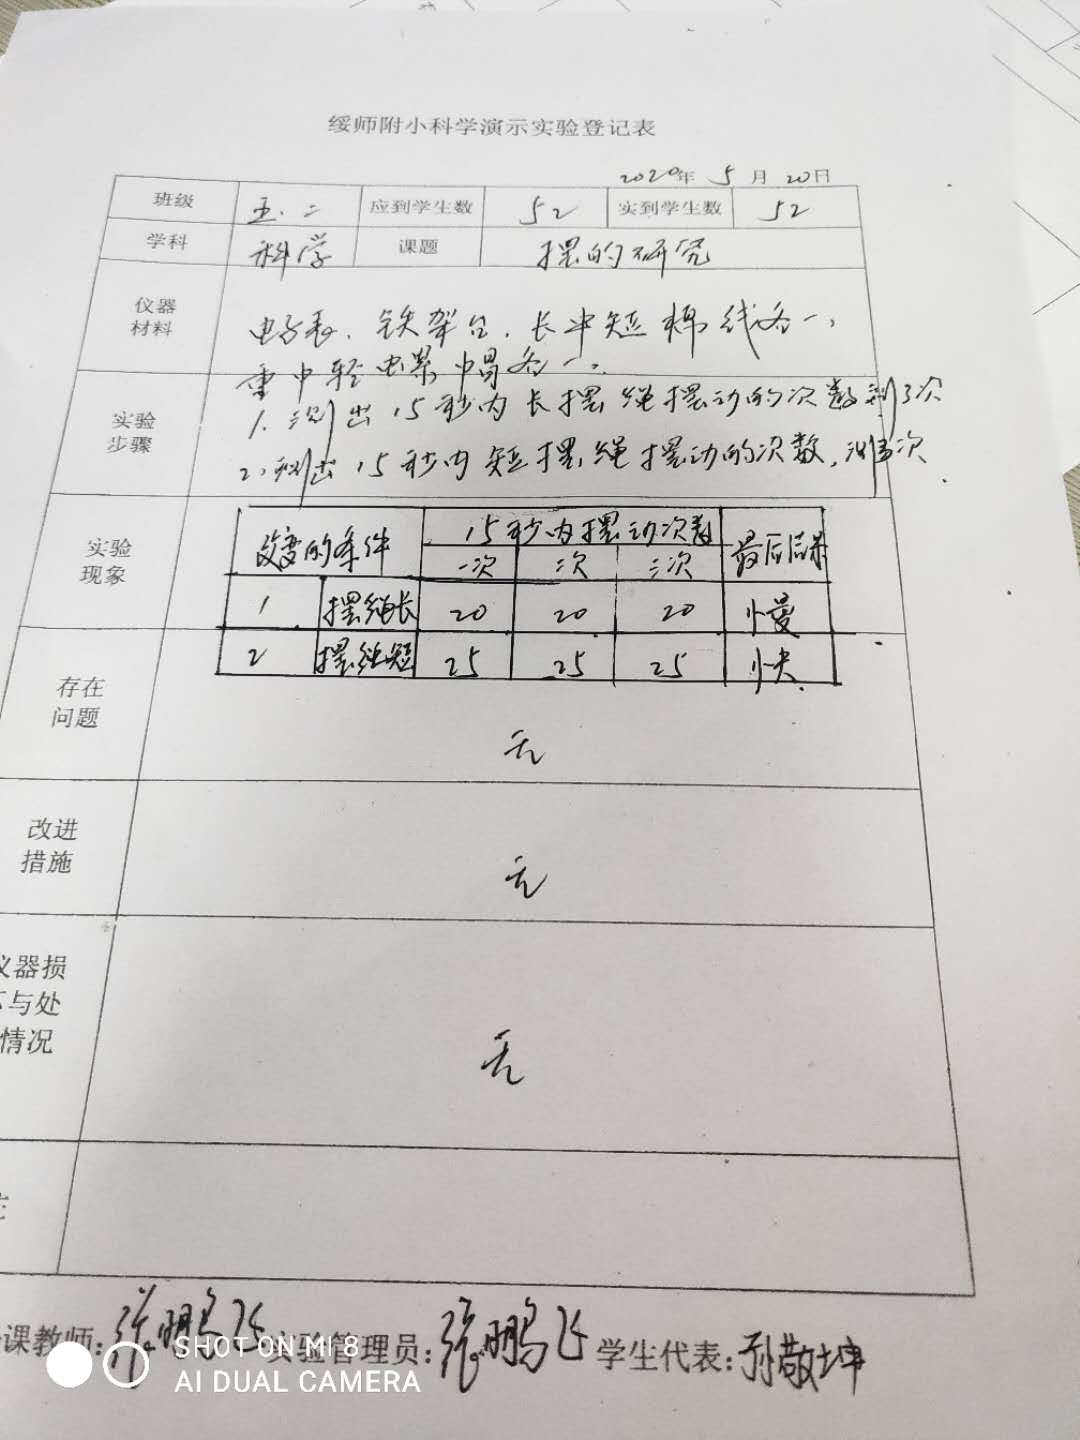 绥师附小科学演示实验登记表
2020年 5 月 20日
班级 五.二 应到学生数 52 实到学生数 52
学科 科学 课题 摆的研究
仪器
材料
电子表、铁架台、长中短棉线各一、
重中轻螺帽各一、
实验
步骤
1、测出15秒内长摆绳摆动的次数 测3次
2、测出15秒内短摆绳摆动的次数,测3次
实验
现象
改变的条件 15秒内摆动次数 最后后果
一次 二次 三次
1 摆绳长 20 20 20 慢
2 摆绳短 25 25 25 快
存在
问题
无
改进
措施
无
仪器损
与处
情况
无
课教师:张鹏飞 实验管理员:张鹏飞 学生代表:孙敬坤
SHOT ON MI 8
AI DUAL CAMERA